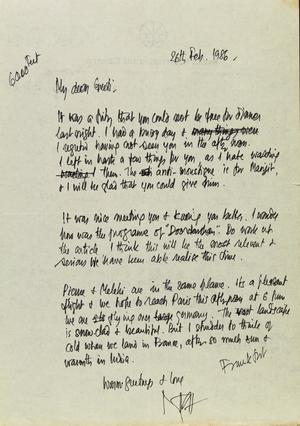 6000 feet
26th Feb. 1986.
My dear Geeti,
It was a pity that you could not be free for dinner
last night. I had a busy day & many things were
I regret having not seen you in the after noon.
I left in bank a few things for you as I hate
them. The anti-moustique is for Manjit,
& I will be glad that you could give him.
It was nice meeting you & knowing you better. I wonder
how was the programe of "Doordarshan". Do work out
the article. I think this will be the most relevant &
serious we have been able realise this time.
Pierre & Meloki are in the same plane. Its a pleasant
flight & we hope to reach Paris this afternoon at 6 pm
we are flying over germany. The landscape
is snowclad & beautiful. But I shudder to think of
cold when we land in France, after so much sun &
warmth in India.
Warm greetings & love